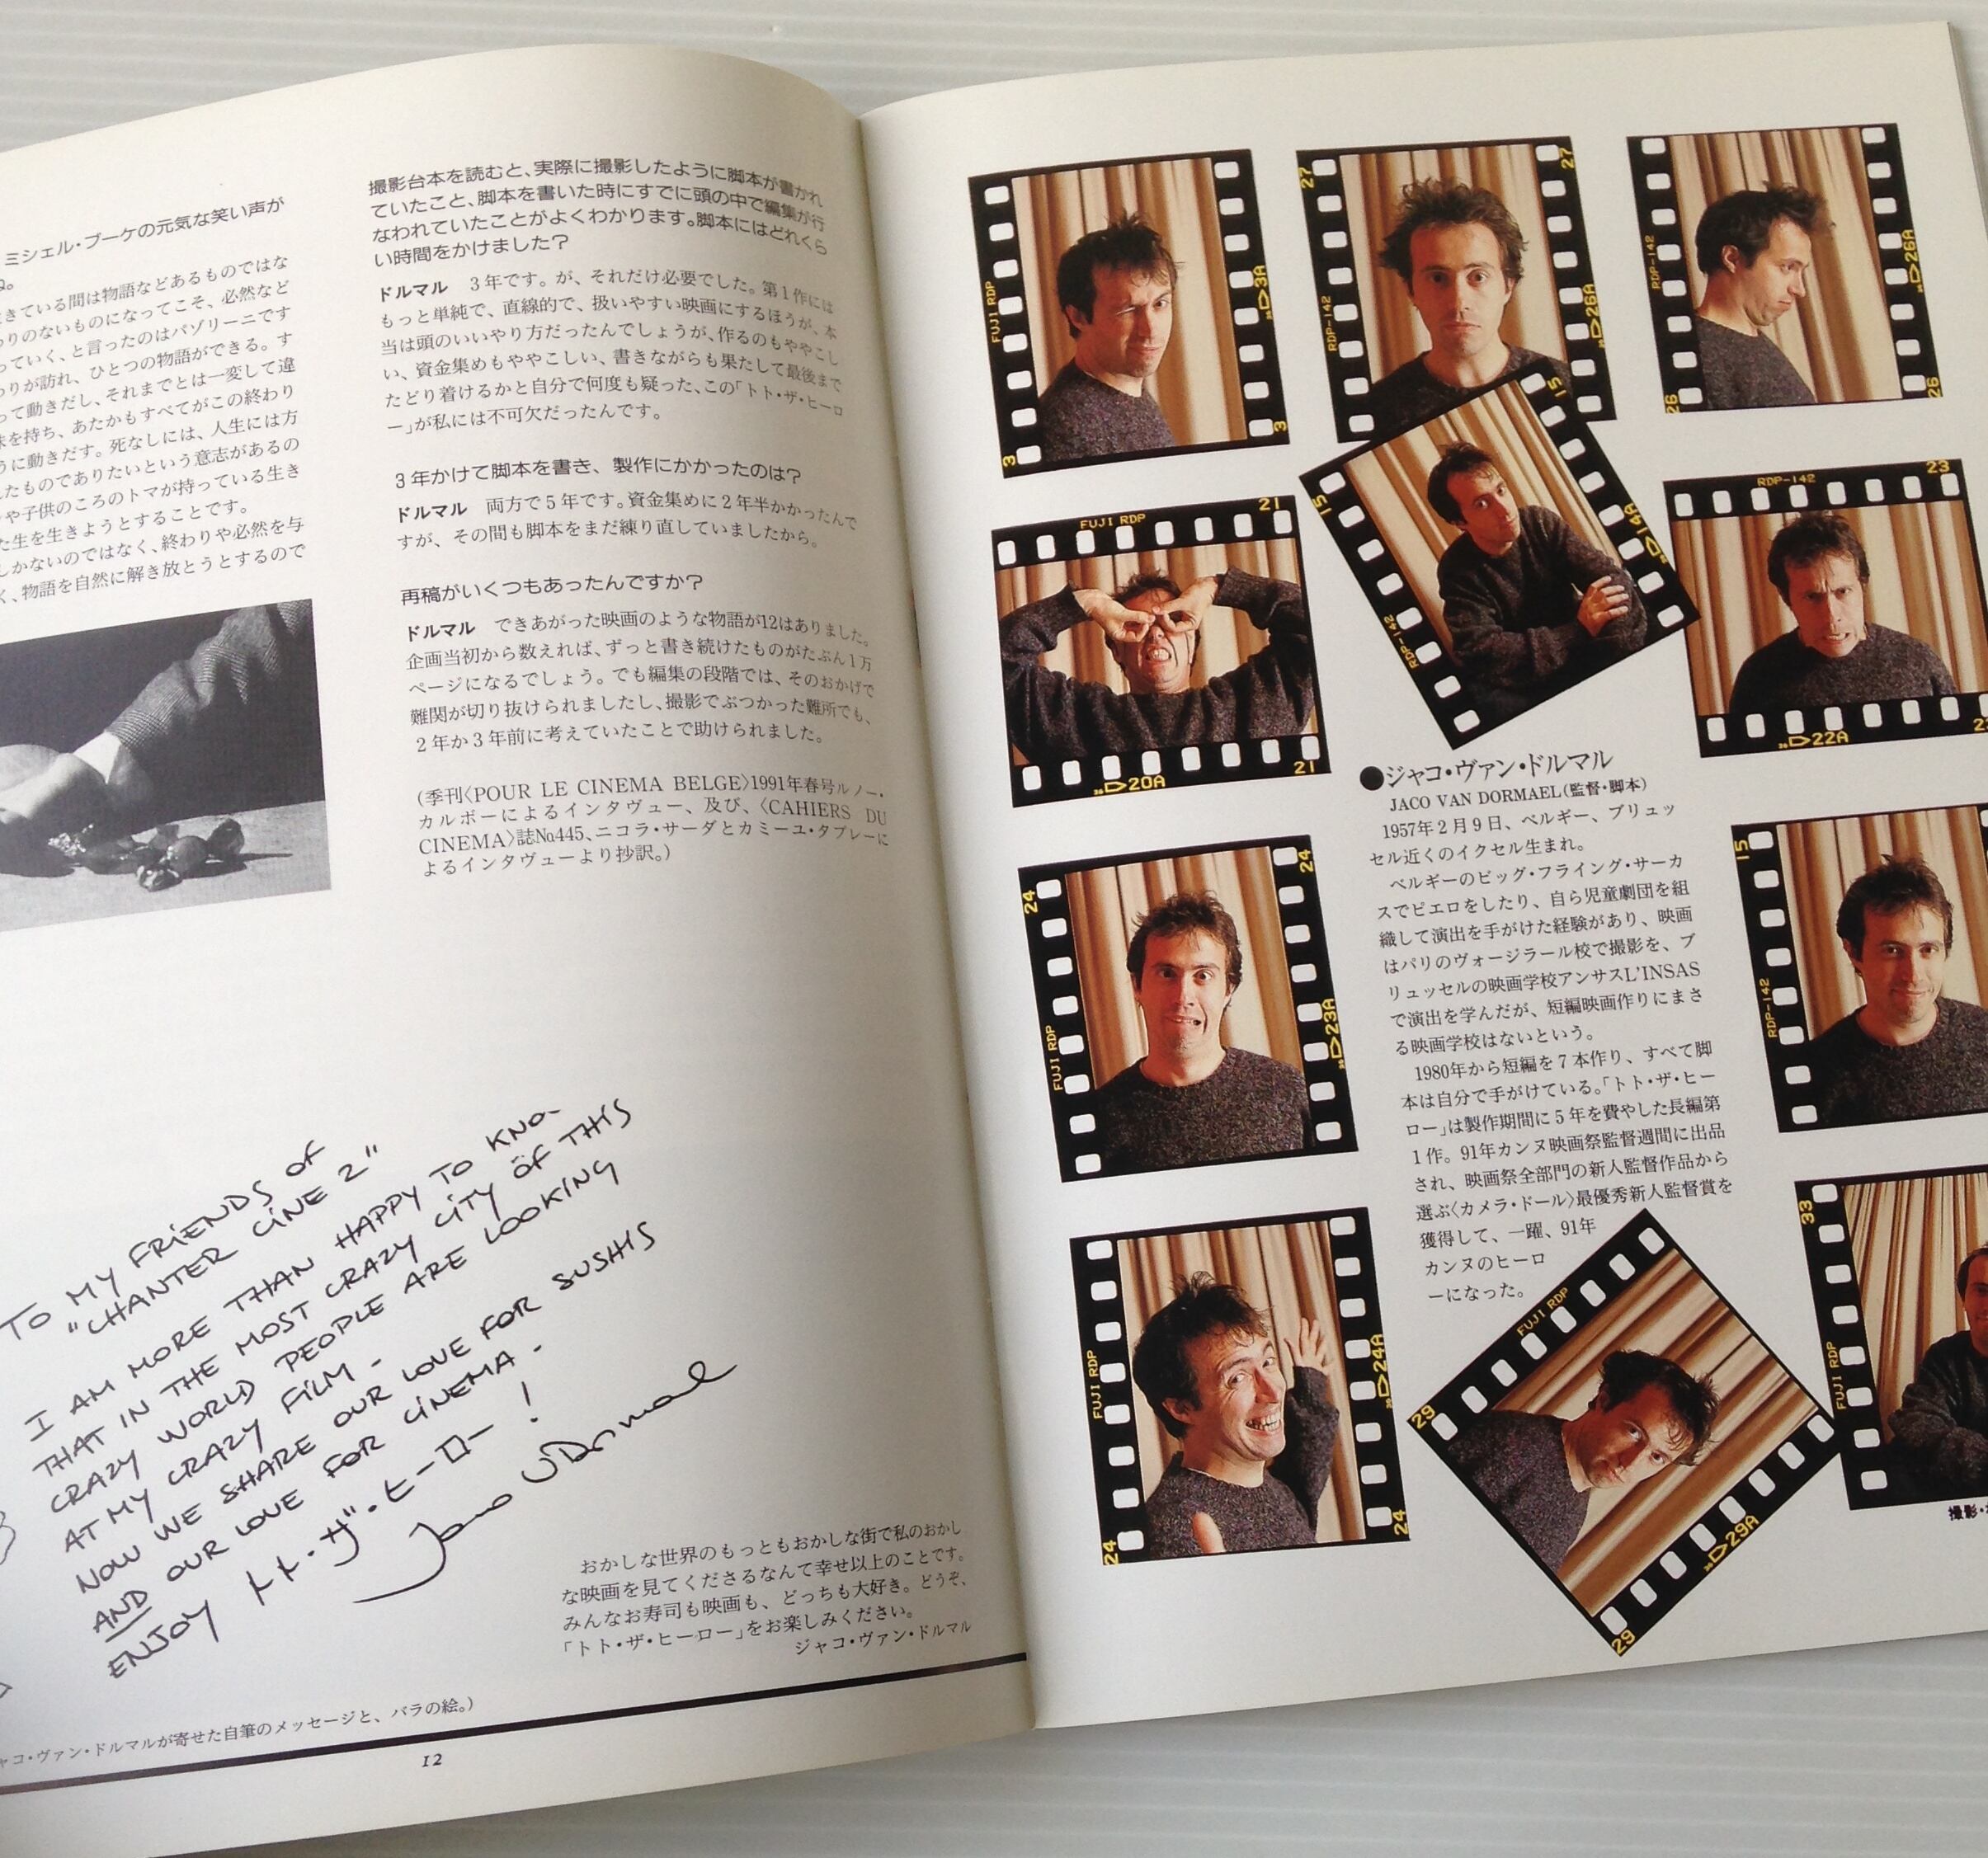 ミシェル・ブーケの元気な笑い声が
ね。
きている間は物語などあるものではな
わりのないものになってこそ、必然など
っていく、と言ったのはパゾリーニです
わりが訪れ、ひとつの物語ができる。す
って動きだし、それまでとは一変して違
味を持ち、あたかもすべてがこの終わり
うに動きだす。死なしには、人生には方
したものでありたいという意志があるの
や子供のころのトマが持っている生き
た生を生きようとすることです。
しかないのではなく、終わりや必然を与
く、物語を自然に解き放とうとするので
撮影台本を読むと、実際に撮影したように脚本が書かれ
ていたこと、脚本を書いた時にすでに頭の中で編集が行
なわれていたことがよくわかります。脚本にはどれくら
い時間をかけました?
ドルマル　3年です。が、それだけ必要でした。第1作には
もっと単純で、直線的で、扱いやすい映画にするほうが、本
当は頭のいいやり方だったんでしょうが、作るのもややこし
い、資金集めもややこしい、書きながらも果たして最後まで
たどり着けるかと自分で何度も疑った、この「トト・ザ・ヒーロ
ー」が私には不可欠だったんです。
3年かけて脚本を書き、製作にかかったのは?
ドルマル　両方で5年です。資金集めに2年半かかったんで
すが、その間も脚本をまだ練り直していましたから。
再稿がいくつもあったんですか?
ドルマル　できあがった映画のような物語が12はありました。
企画当初から数えれば、ずっと書き続けたものがたぶん1万
ページになるでしょう。でも編集の段階では、そのおかげで
難関が切り抜けられましたし、撮影でぶつかった難所でも、
2年か3年前に考えていたことで助けられました。
(季刊〈POUR LE CINEMA BELGE〉1991年春号ルノー・
カルボーによるインタヴュー、及び、〈CAHIERS DU
CINEMA〉誌№445、ニコラ・サーダとカミーユ・タブレーに
よるインタヴューより抄訳。)
TO MY FRIENDS OF
"CHANTER CINE 2"
I AM MORE THAN HAPPY TO KNO
THAT IN THE MOST CRAZY CITY OF THIS
CRAZY WORLD PEOPLE ARE LOOKING
AT MY CRAZY FILM -
NOW WE SHARE OUR LOVE FOR SUSHIS
AND OUR LOVE FOR CINEMA -
ENJOY トト・ザ・ヒーロー !
Jaco v Dormael
おかしな世界のもっともおかしな街で私のおかし
な映画を見てくださるなんて幸せ以上のことです。
みんなお寿司も映画も、どっちも大好き。どうぞ、
「トト・ザ・ヒーロー」をお楽しみください。
ジャコ・ヴァン・ドルマル
ャコ・ヴァン・ドルマルが寄せた自筆のメッセージと、バラの絵。)
12
FUJI RDP
3A
3
3
27
27
RDP-142
26A
RDP-142
26A
26
26
FUJI RDP
21
20A
21
15
15
RDP-142
14A
RDP-142
23
22A
●ジャコ・ヴァン・ドルマル
JACO VAN DORMAEL(監督・脚本)
1957年2月9日、ベルギー、ブリュッ
セル近くのイクセル生まれ。
ベルギーのビッグ・フライング・サーカ
スでピエロをしたり、自ら児童劇団を組
織して演出を手がけた経験があり、映画
はパリのヴォージラール校で撮影を、ブ
リュッセルの映画学校アンサスL'INSAS
で演出を学んだが、短編映画作りにまさ
る映画学校はないという。
1980年から短編を7本作り、すべて脚
本は自分で手がけている。「トト・ザ・ヒー
ロー」は製作期間に5年を費やした長編第
1作。91年カンヌ映画祭監督週間に出品
され、映画祭全部門の新人監督作品から
選ぶ〈カメラ・ドール〉最優秀新人監督賞を
獲得して、一躍、91年
カンヌのヒーロ
ーになった。
24
24
FUJI RDP
23A
15
RDP-142
FUJI RDP
24A
24
24
FUJI RDP
29
29A
29
33
FUJI RDP
撮影・